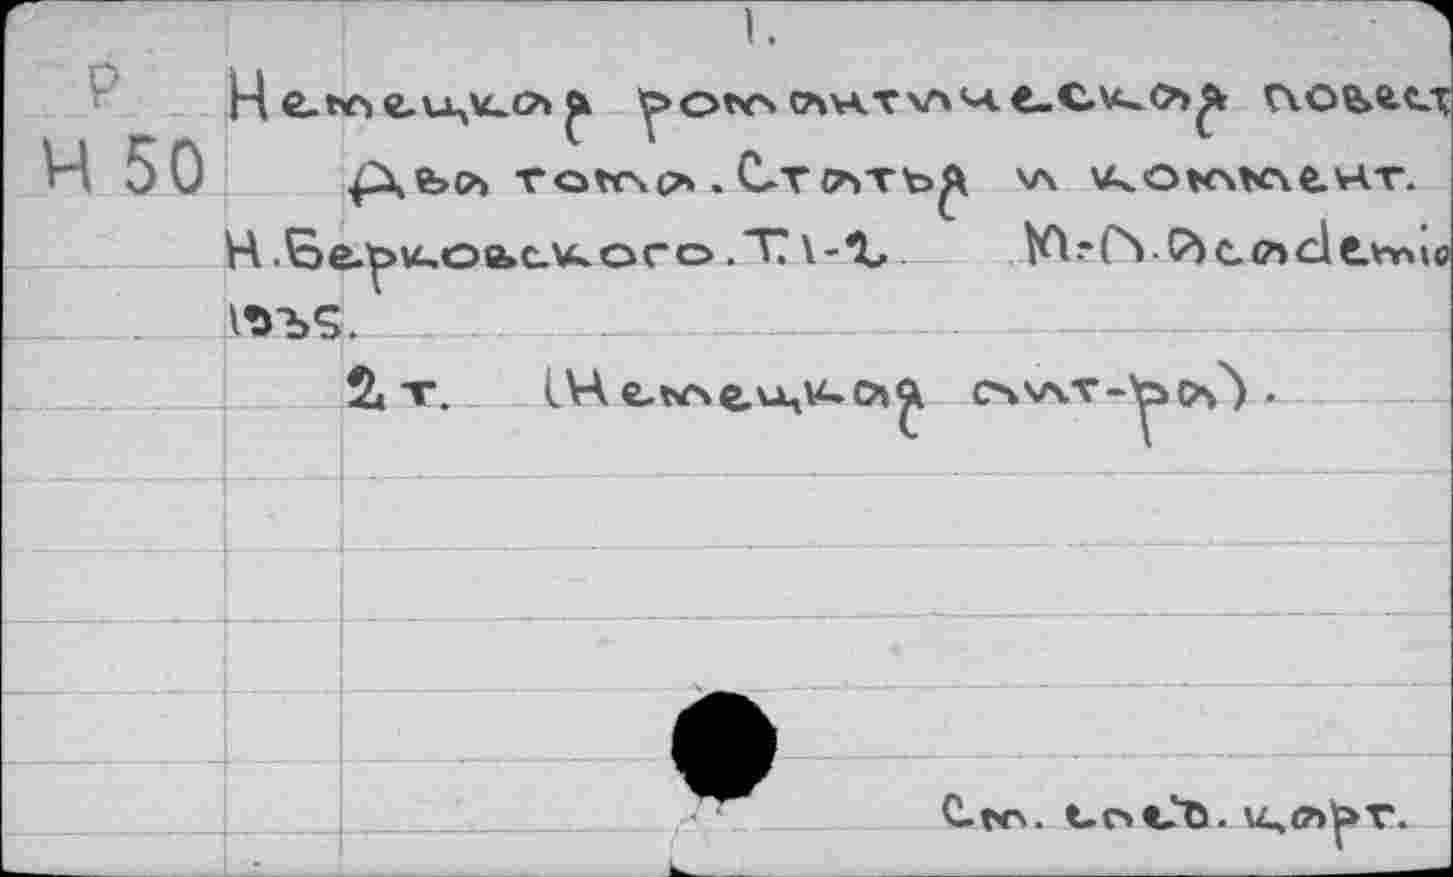 1.
Р Немецкая романтическая повест
Н 50 Два тома. Статья и коммент.
Н. Берковского. Т. 1-2. М.-Л. Academia
1935.
2 т. (Немецкая лит-ра).
См. след. карт.